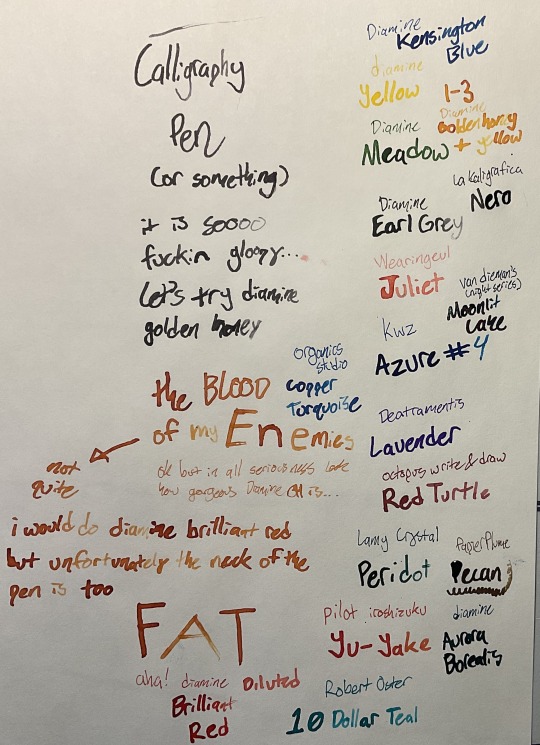 Calligraphy
Pen
(or something)
it is soooo
fuckin gloopy...
Let's try diamine
golden honey
the BLOOD
of my Enemies
not
quite
ok but in all seriousness look
how gorgeous Diamine GH is...
i would do diamine brilliant red
but unfortunately the neck of the
pen is too
FAT
aha! diamine Diluted
Brilliant
Red
Organics
Studio
Copper
Turquoise
Diamine
Kensington
Blue
diamine
Yellow
1-3
Diamine
Golden honey
+ yellow
Diamine
Meadow
La Kaligrafica
Nero
Diamine
Earl Grey
Wearingeul
Juliet
van dieman's
(night series)
Moonlit
Lake
KWZ
Azure #4
Deatramentis
Lavender
octopus write & draw
Red Turtle
Lamy Crystal
Peridot
Papier Plume
Pecan
Pilot iroshizuku
Yu-Yake
diamine
Aurora
Borealis
Robert Oster
10 Dollar Teal